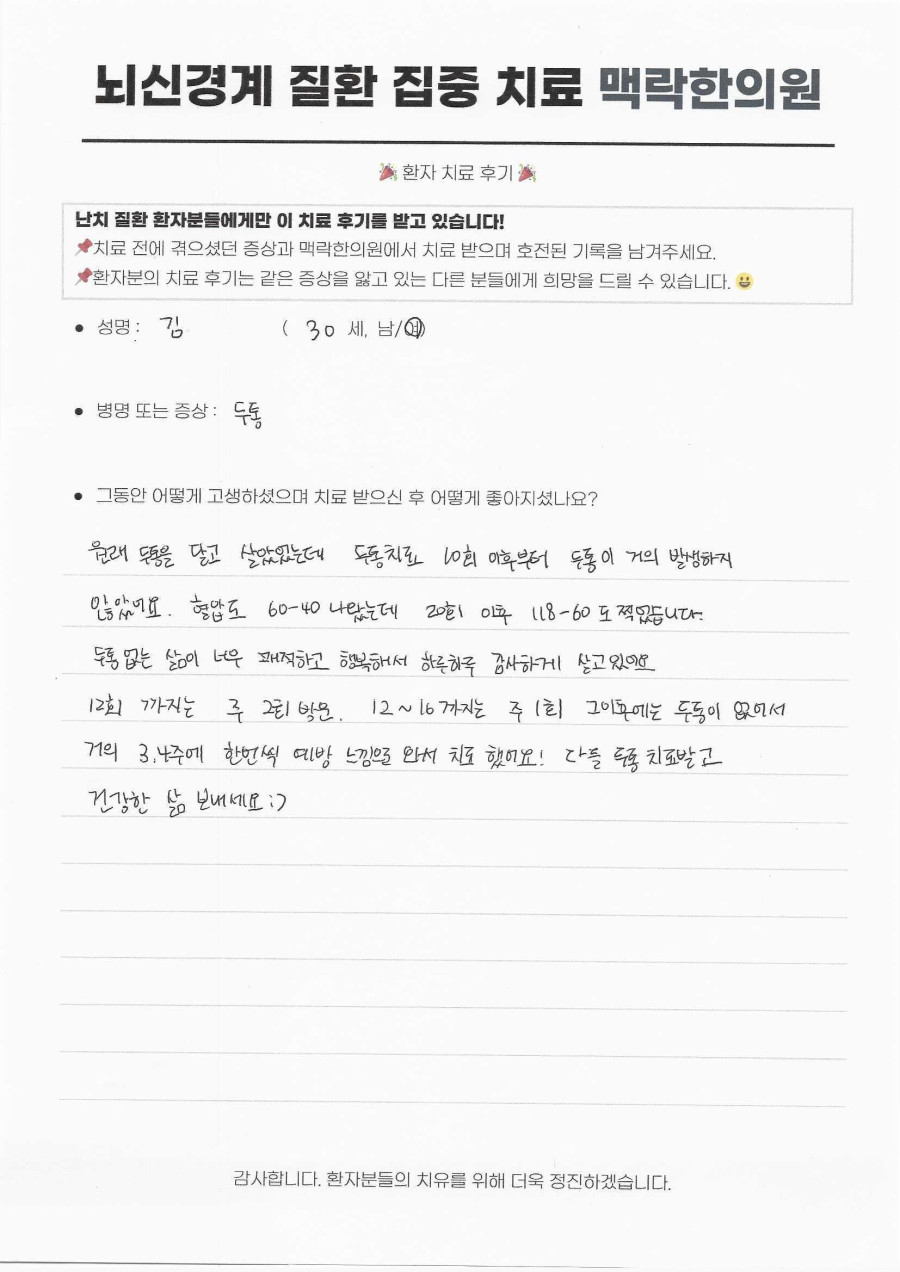 뇌신경계 질환 집중 치료 맥락한의원
🎉 환자 치료 후기 🎉
난치 질환 환자분들에게만 이 치료 후기를 받고 있습니다!
📌치료 전에 겪으셨던 증상과 맥락한의원에서 치료 받으며 호전된 기록을 남겨주세요.
📌환자분의 치료 후기는 같은 증상을 앓고 있는 다른 분들에게 희망을 드릴 수 있습니다. 😃
• 성명 : 김 ( 30 세, 남/여)
• 병명 또는 증상 : 두통
• 그동안 어떻게 고생하셨으며 치료 받으신 후 어떻게 좋아지셨나요?
원래 두통을 달고 살았었는데 두통치료 10회 이후부터 두통이 거의 발생하지
않았어요. 혈압도 60-40 나왔는데 20회 이후 118-60 도 찍었습니다.
두통 없는 삶이 너무 쾌적하고 행복해서 하루하루 감사하게 살고있어요
12회 까지는 주 2회 받요. 12~16까지는 주 1회 그이후에는 두통이 없어서
거의 3,4주에 한번씩 예방 느낌으로 와서 치료 했어요! 다들 두통 치료받고
건강한 삶 보내세요 :)
감사합니다. 환자분들의 치유를 위해 더욱 정진하겠습니다.